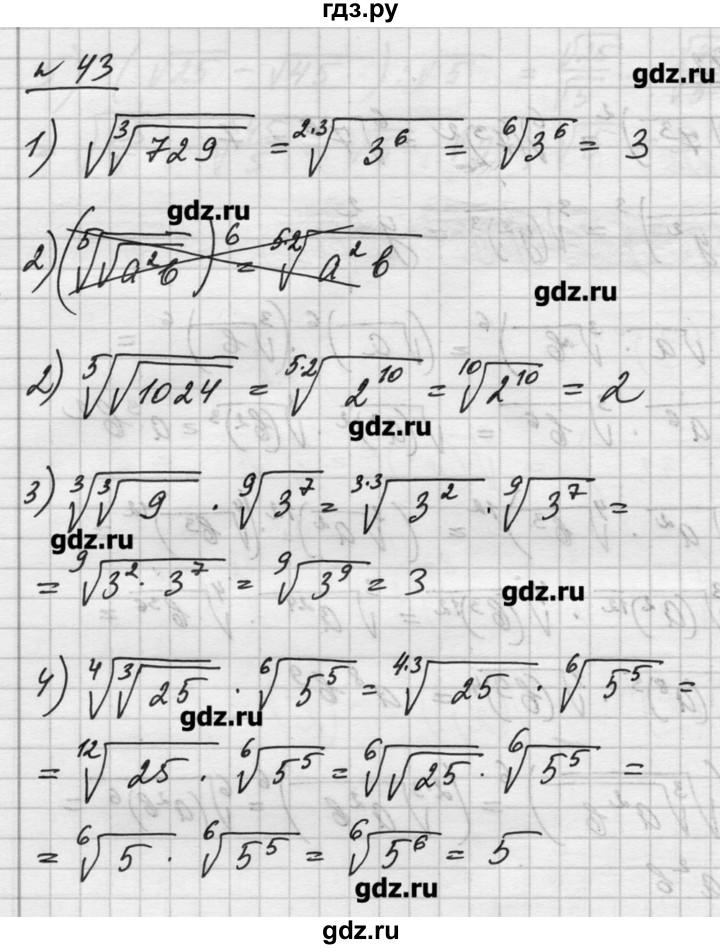 гдз.ру
№ 43
gdz.ru
1) √∛729 = ²·³√3⁶ = ⁶√3⁶ = 3
gdz.ru
2) (⁵√√a²b)⁶ = ⁵·²√a²b
gdz.ru
2) ⁵√√1024 = ⁵·²√2¹⁰ = ¹⁰√2¹⁰ = 2
gdz.ru
3) ∛∛9 · ⁹√3⁷ = ³·³√3² · ⁹√3⁷ =
gdz.ru
= ⁹√3² · 3⁷ = ⁹√3⁹ = 3
gdz.ru
4) ⁴√∛25 · ⁶√5⁵ = ⁴·³√25 · ⁶√5⁵ =
gdz.ru
= ¹²√25 · ⁶√5⁵ = ⁶√√25 · ⁶√5⁵ =
= ⁶√5 · ⁶√5⁵ = ⁶√5⁶ = 5
gdz.ru
gdz.ru